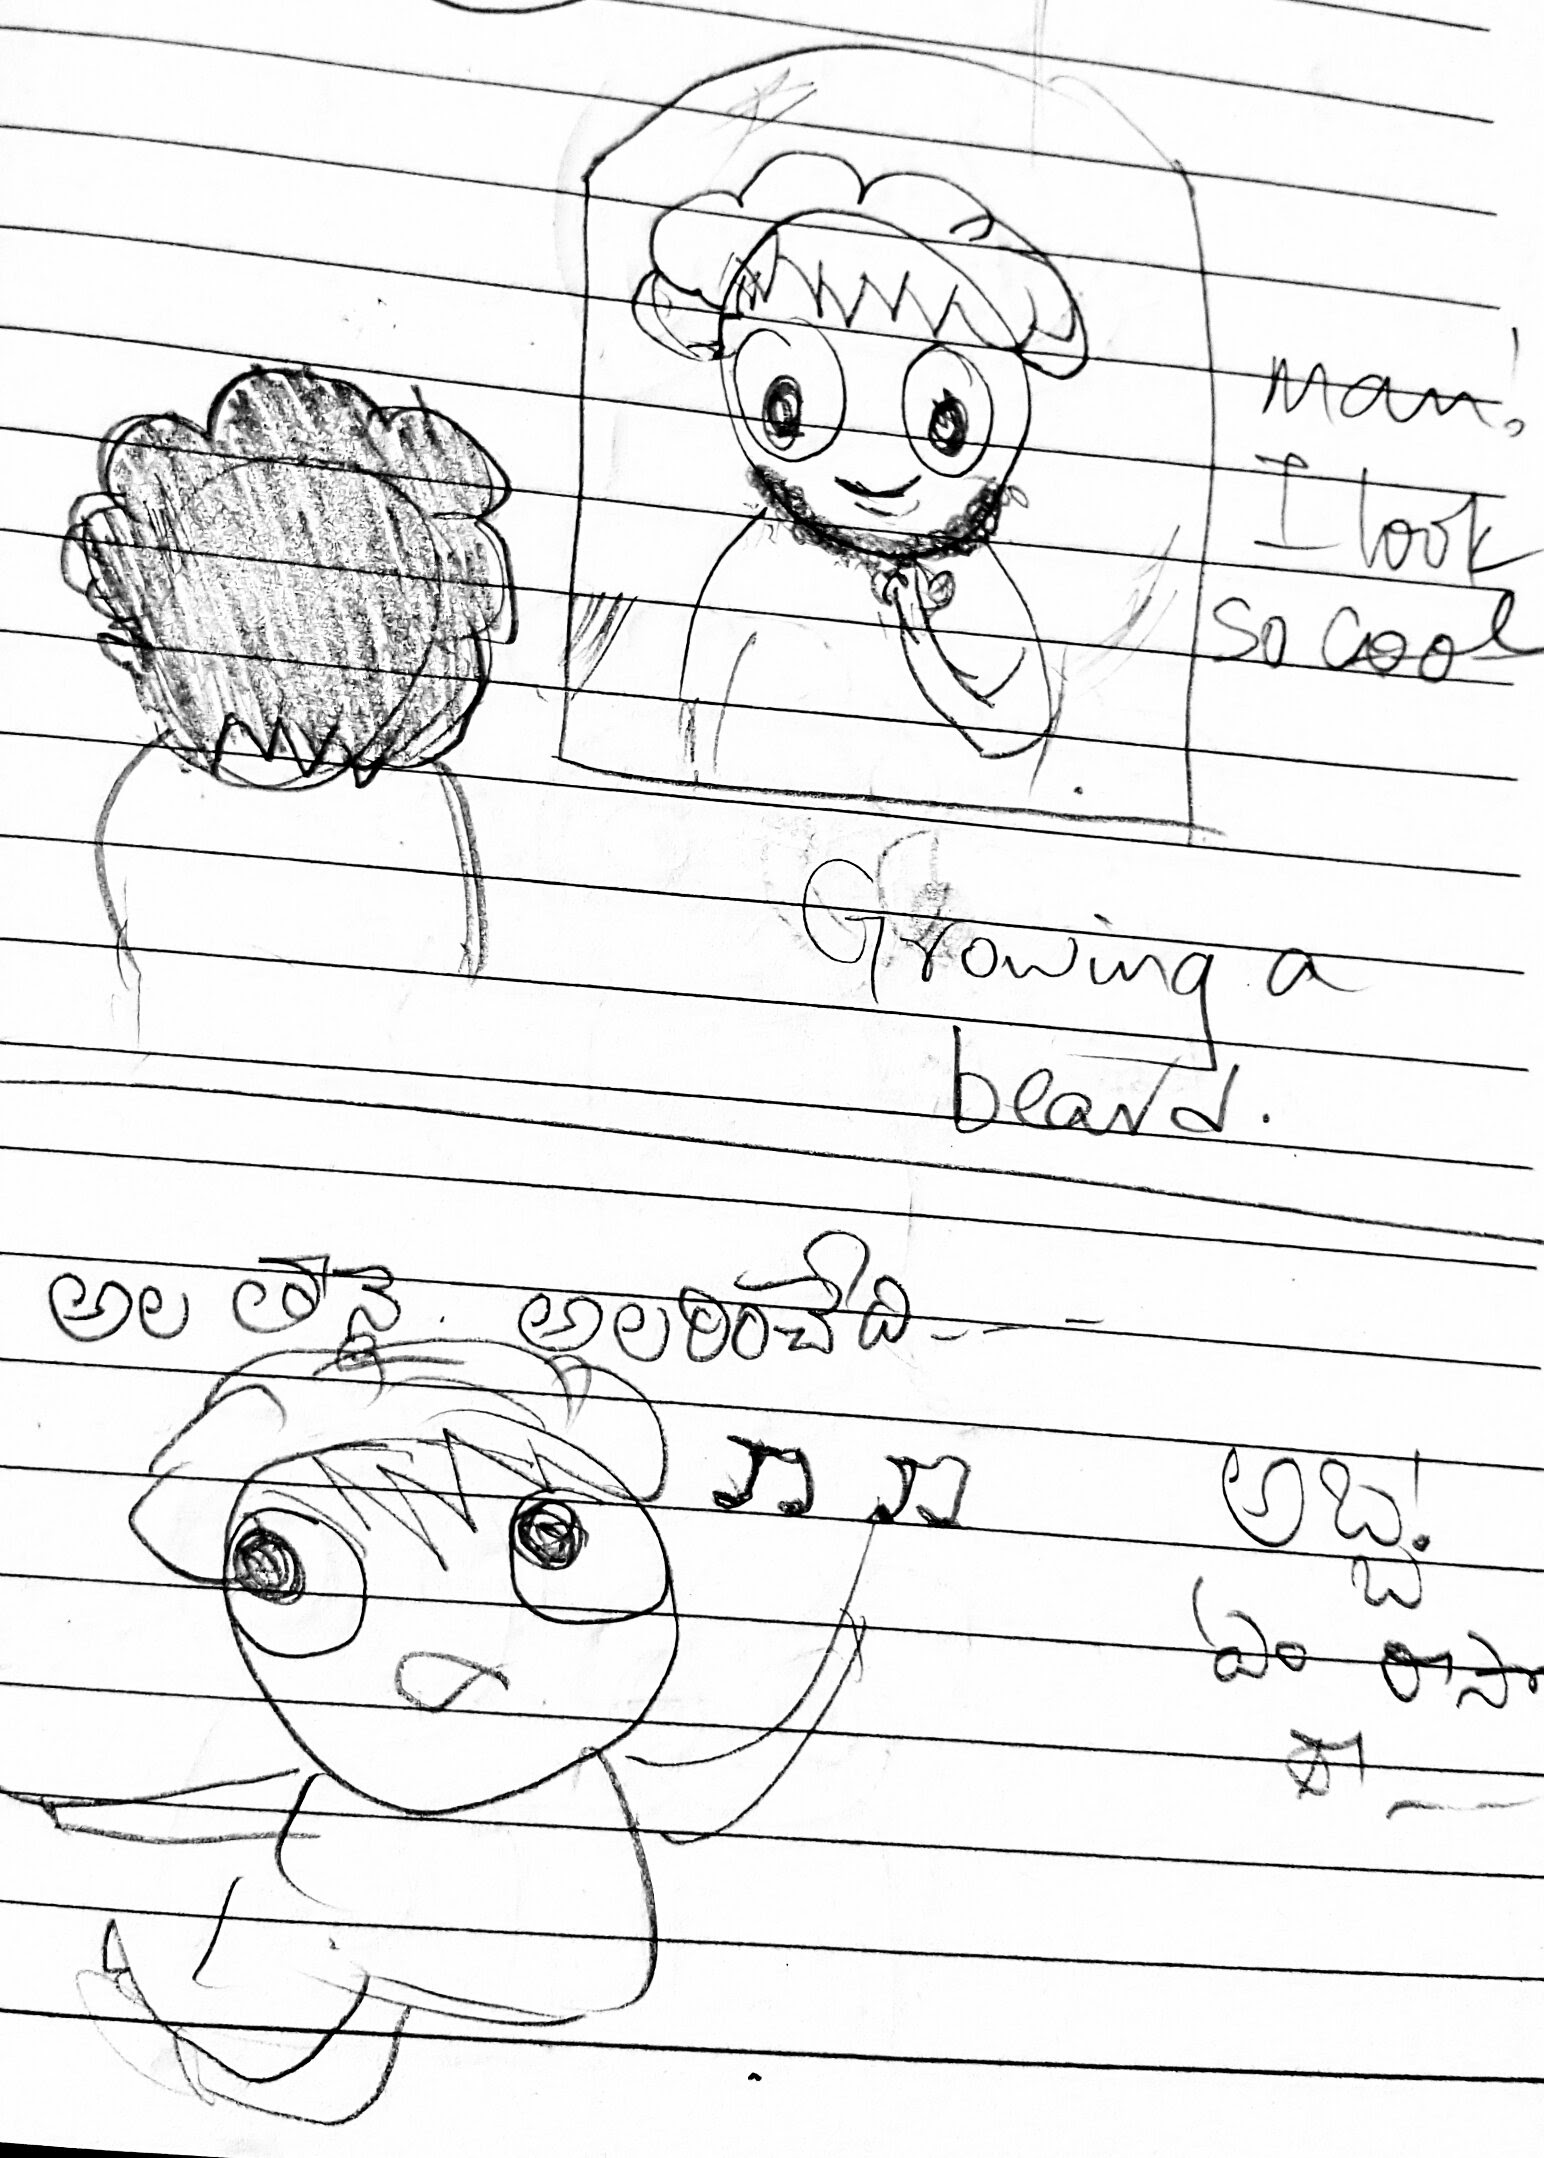 Man!
I look
so cool
Growing a
beard.
అల
అలరించేది----
అబ్బ!
ఏం